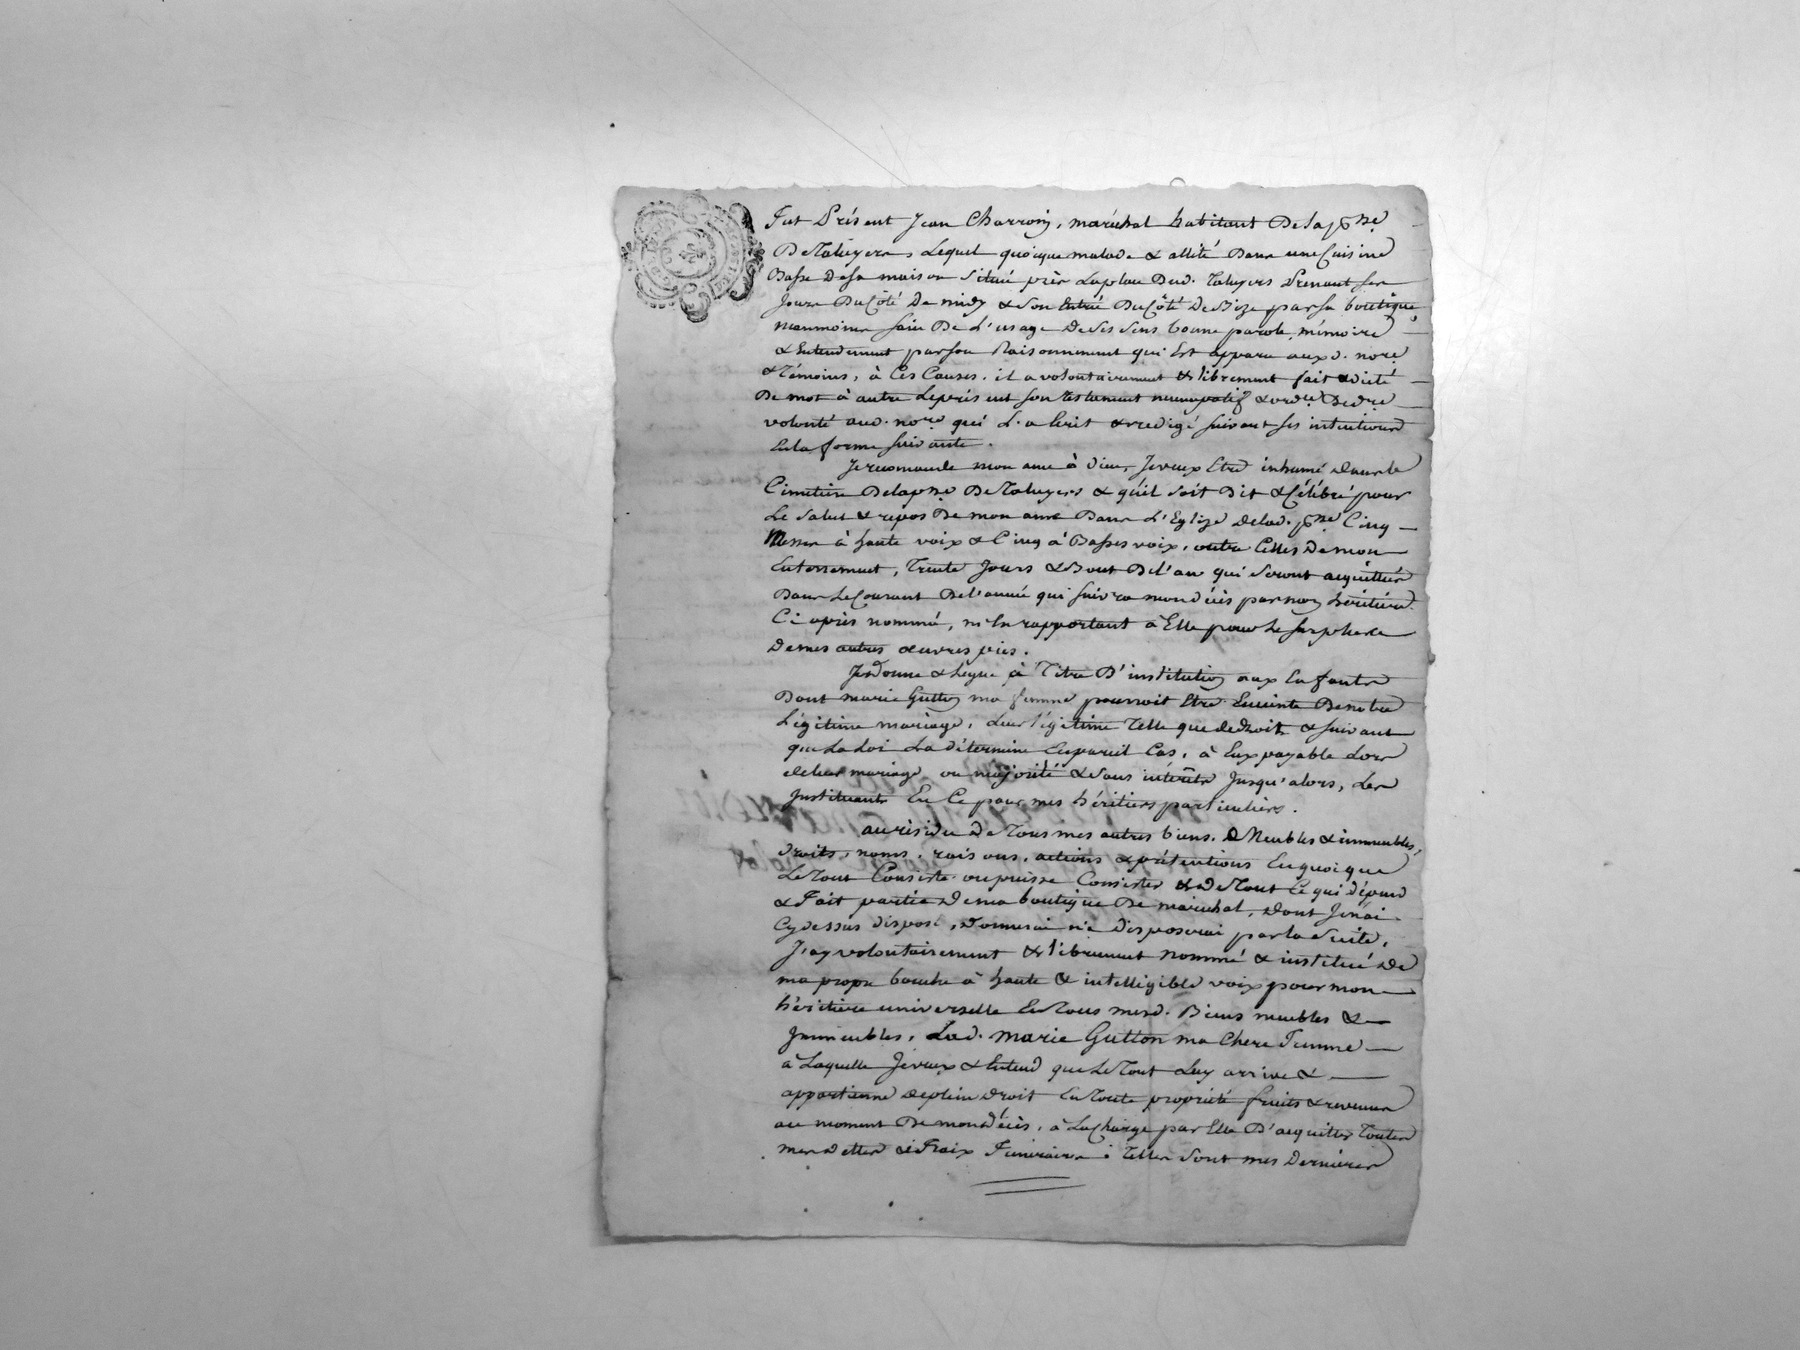 Fut Présent Jean Charroin, maréchal habitant De la psse
De Taluyers, Lequel quoique malade & allité Dans une Cuisine
Basse De sa maison Située près La place Dud. Taluyers Prenant ses
Jours Du Côté De midy & son Entrée Du Côté De Bize par sa boutique,
neanmoins sain De L'usage De ses sens bonne parole, mémoire
& Entendement par son Raisonnement qui Est apparu auxd. nore
& Témoins, à Ces Causes, il a volontairement & librement fait & dicté
De mot à autre Le présent son testament nuncupatif & ordre De dre
volonté aud. nore qui L'a Ecrit & redigé suivant ses intentions
En la forme suivante.
Je recomande mon ame à Dieu, Je veux Etre inhumé dans le
Cimetière De la psse De Taluyers & qu'il soit Dit & Célébré pour
Le salut & repos De mon ame Dans L'Eglize de lad. psse Cinq
Messes à haute voix & Cinq à Basses voix, outre Celles De mon
Enterrement, Trente Jours & Bout De l'an qui seront acquittées
Dans Le Courant De l'année qui suivra mon décès par mon héritière
Ci après nommé, m'En rapportant à Elle pour Le surplus de
De mes autres œuvres pies.
Je donne & Legue à Titre D'institution aux Enfants
Dont marie Gutton ma femme pourroit Etre Enceinte De notre
Légitime mariage, Leur légitime Telle que de droit & suivant
que La Loi La détermine En pareil Cas, à Eux payable Lors
de leur mariage ou majorité & sans intérêts Jusqu'alors, Les
Instituants En Ce pour mes héritiers particuliers.
au résidu De Tous mes autres biens, Meubles & immeubles,
droits, noms, raisons, actions & prétentions En quoi que
Le Tout Consiste ou puisse Consister & De Tout Ce qui dépend
& Fait partie De ma boutique De maréchal, Dont Je n'ai
Cy dessus disposé, Donnerai ni Disposerai par la suite,
J'ay volontairement & librement nommé & institué De
ma propre bouche à haute & intelligible voix pour mon
héritière universelle En Tous mesd. Biens meubles &
Immeubles, Lad. marie Gutton ma Chere Femme
à Laquelle Je veux & Entend que Le Tout Luy arrive &
appartienne De plein Droit En Toute propriété fruits & revenus
au moment De mon Décès, à La Charge par Elle D'acquitter Toutes
mes Dettes & Fraix Funéraires. Telles sont mes Dernières